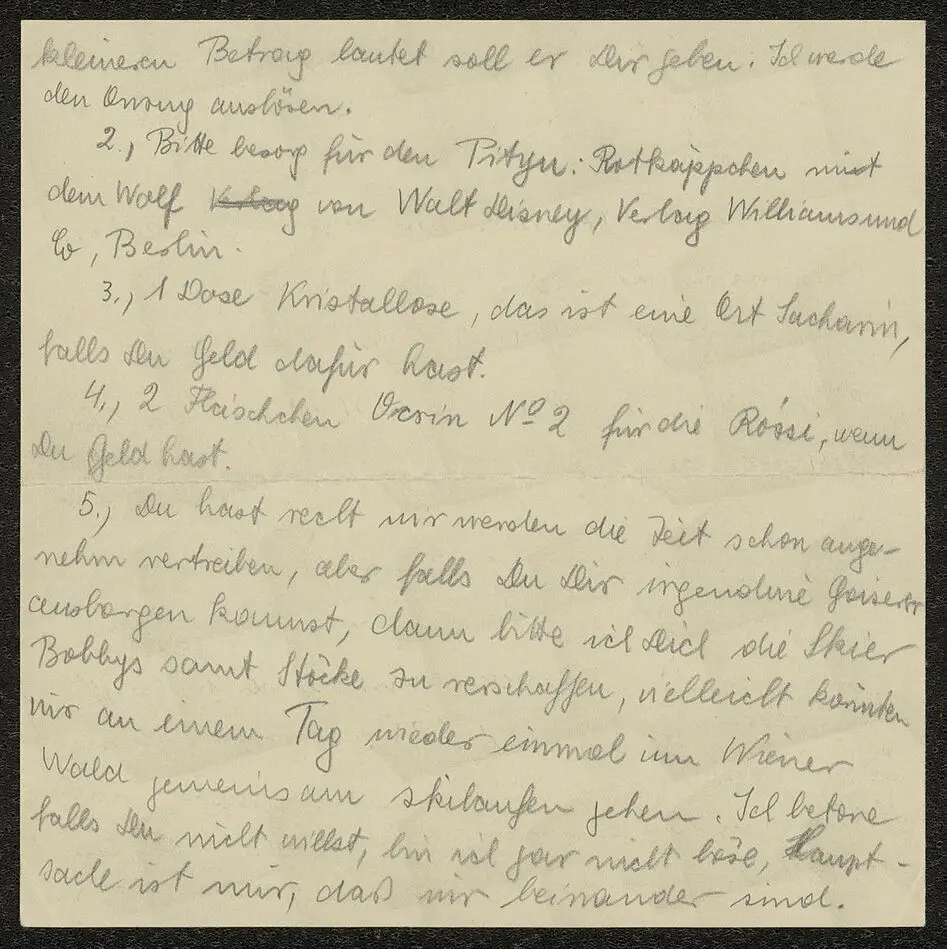 kleineren Betrag lautet soll er Dir geben. Ich werde
den Anzug auslösen.
2., Bitte besorg für den Pityu: Rotkäppchen mit
dem Wolf Verlag von Walt Disney, Verlag Williams und
Co, Berlin.
3., 1 Dose Kristallose, das ist eine Art Sacharin,
falls Du Geld dafür hast.
4., 2 Fläschchen Nº 2 für die Róssi, wenn
Du Geld hast.
5., Du hast recht wir werden die Zeit schon ange-
nehm vertreiben, aber falls Du Dir irgendwie Goiserer
ausborgen kannst, dann bitte ich Dich die Skier
Bobbys samt Stöcke zu verschaffen, vielleicht könnten
wir an einem Tag wieder einmal im Wiener
Wald gemeinsam skilaufen gehen. Ich betone
falls Du nicht willst, bin ich gar nicht böse, Haupt-
sache ist mir, daß wir beinander sind.